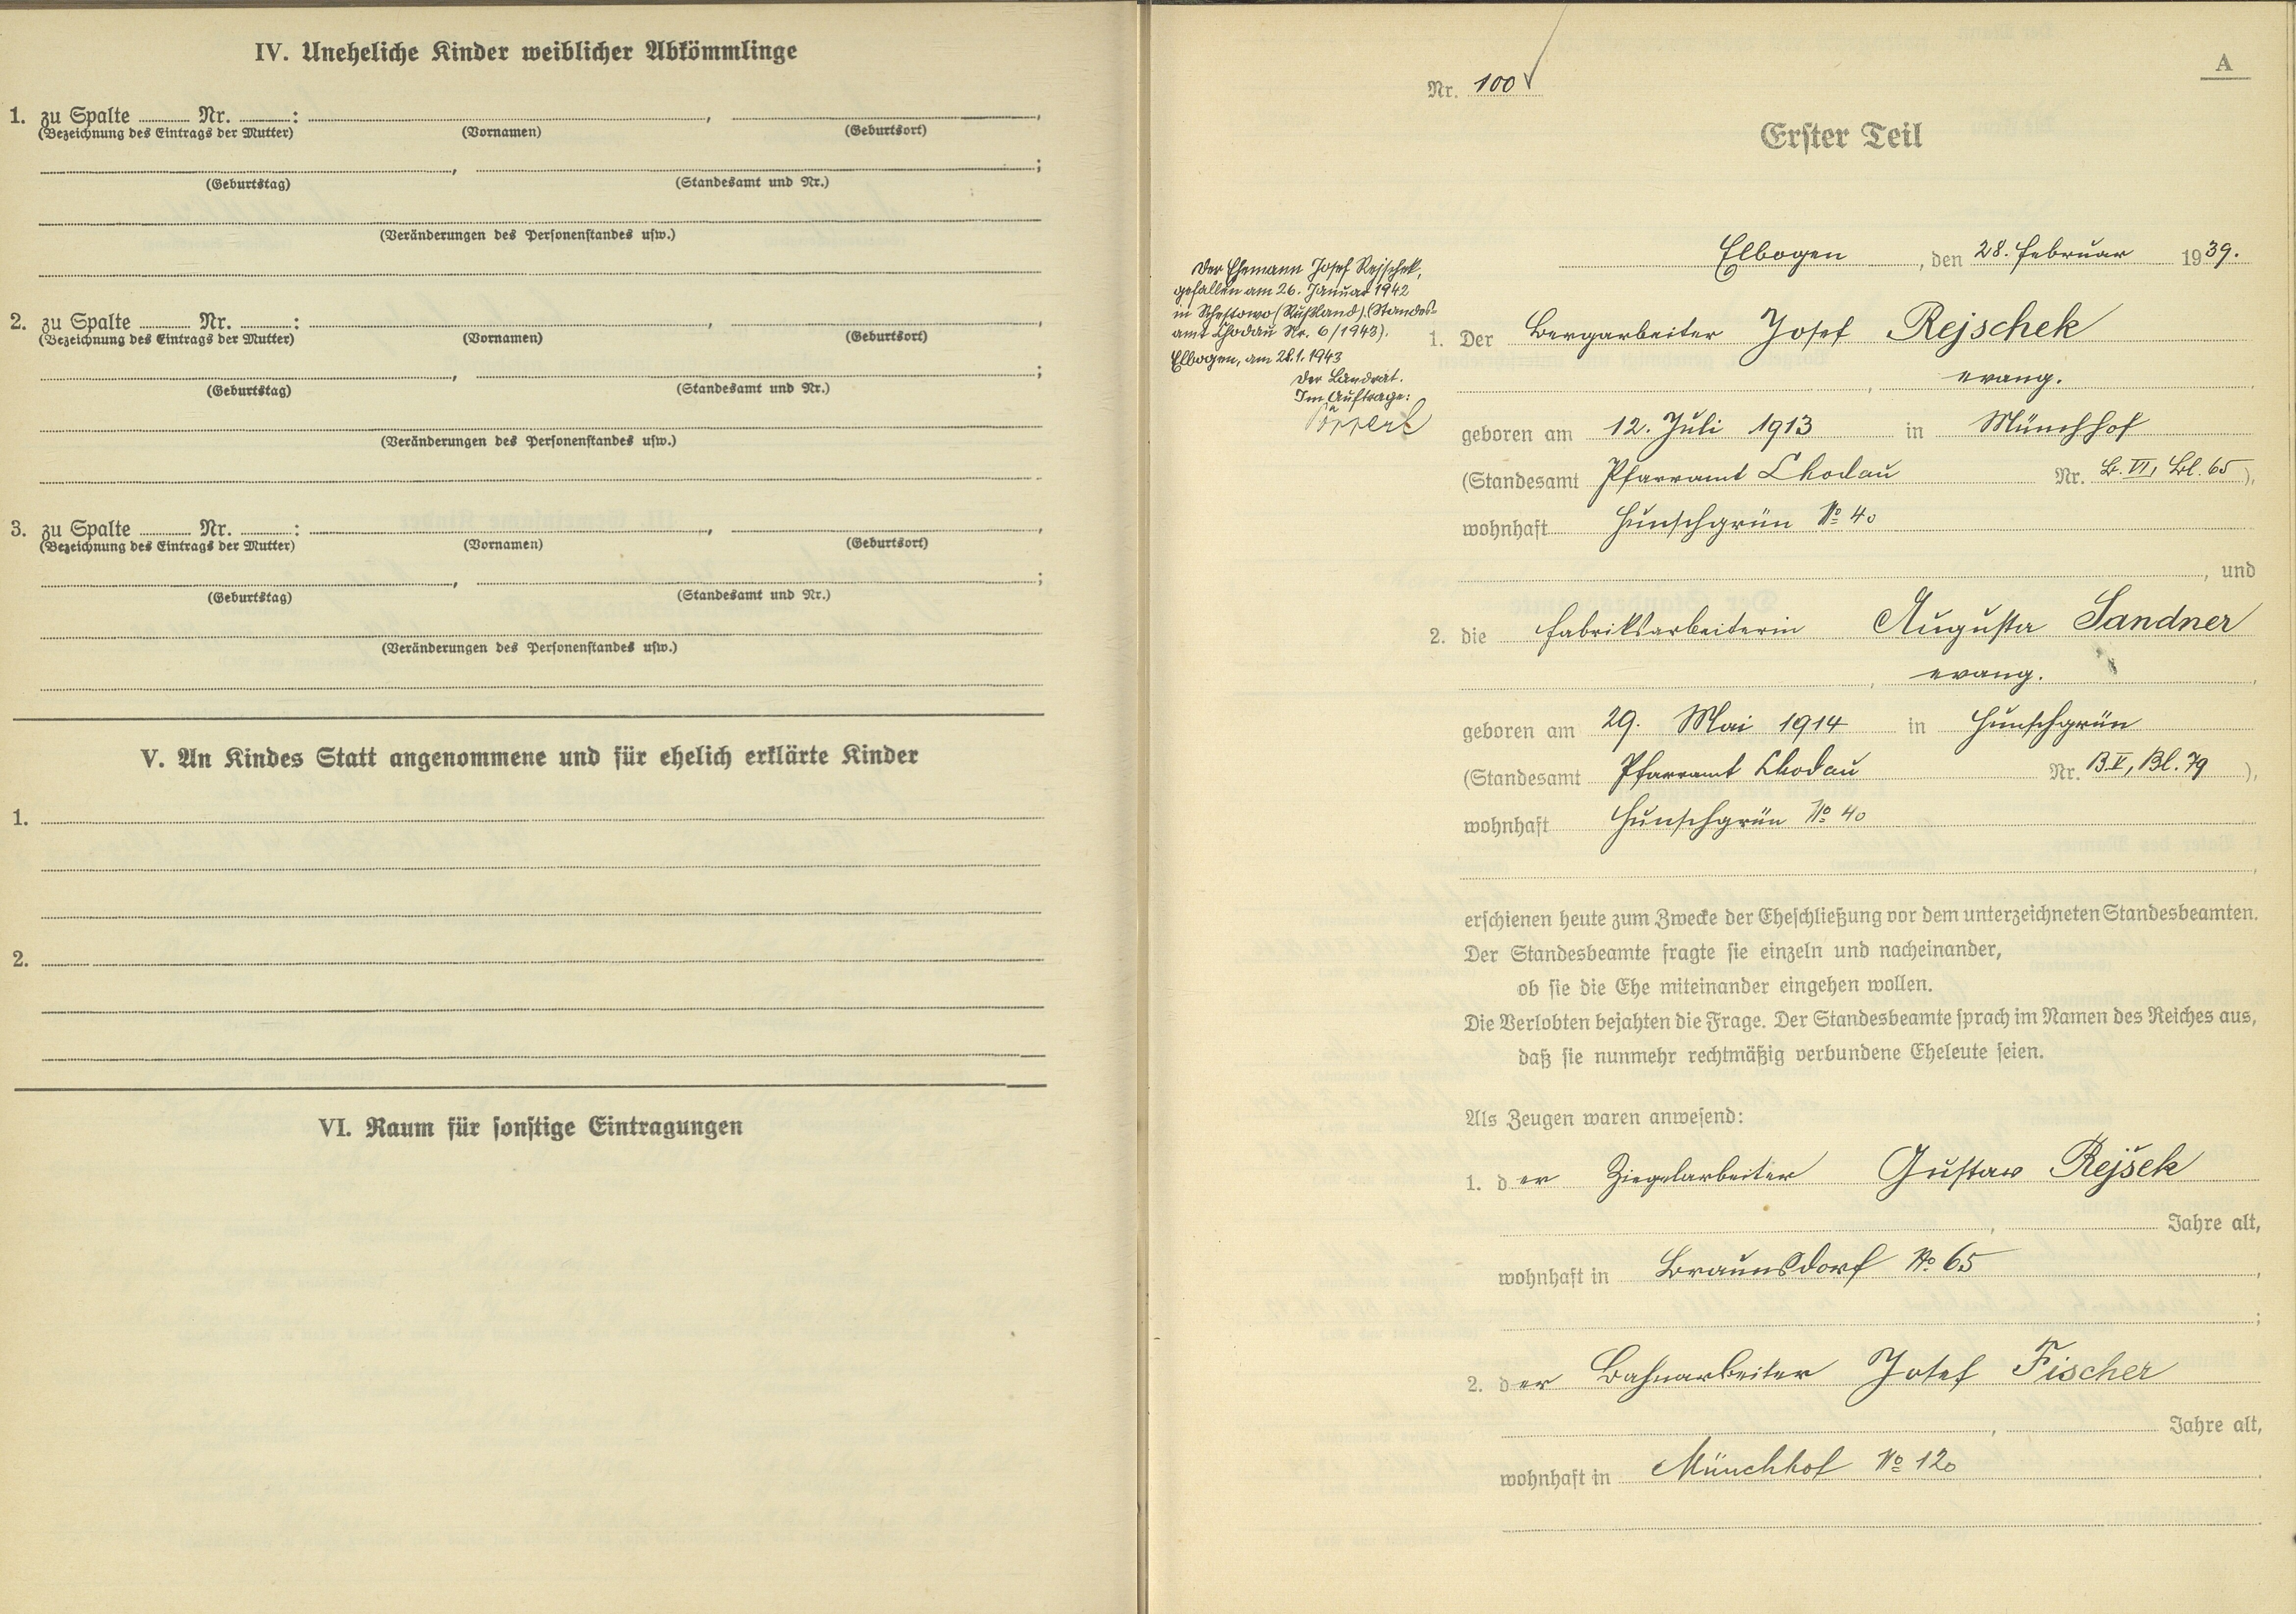 IV. Uneheliche Kinder weiblicher Abkömmlinge
1. zu Spalte ........ Nr. ........: ........, ........,
(Bezeichnung des Eintrags der Mutter) (Vornamen) (Geburtsort)
........, ........;
(Geburtstag) (Standesamt und Nr.)
(Veränderungen des Personenstandes usw.)
2. zu Spalte ........ Nr. ........: ........, ........,
(Bezeichnung des Eintrags der Mutter) (Vornamen) (Geburtsort)
........, ........;
(Geburtstag) (Standesamt und Nr.)
(Veränderungen des Personenstandes usw.)
3. zu Spalte ........ Nr. ........: ........, ........,
(Bezeichnung des Eintrags der Mutter) (Vornamen) (Geburtsort)
........, ........;
(Geburtstag) (Standesamt und Nr.)
(Veränderungen des Personenstandes usw.)
V. An Kindes Statt angenommene und für ehelich erklärte Kinder
1.
2.
VI. Raum für sonstige Eintragungen
A
Nr. 100
Erster Teil
Elbogen, den 28. Februar 1939.
Der Ehemann Josef Rejschek,
gefallen am 26. Januar 1942
in (Rußland). (Standes-
amt Chodau Nr. 6/1943).
Elbogen, am 28.1.1943
Der Landrat.
Im Auftrage:
1. Der Bergarbeiter Josef Rejschek
, evang.
geboren am 12. Juli 1913 in Münchhof
(Standesamt Pfarramt Chodau Nr. B. VI, Bl. 65),
wohnhaft Hunschgrün No 40
, und
2. die Fabriksarbeiterin Augusta Sandner
, evang.,
geboren am 29. Mai 1914 in Hunschgrün
(Standesamt Pfarramt Chodau Nr. B.V, Bl. 79),
wohnhaft Hunschgrün No 40
,
erschienen heute zum Zwecke der Eheschließung vor dem unterzeichneten Standesbeamten.
Der Standesbeamte fragte sie einzeln und nacheinander,
ob sie die Ehe miteinander eingehen wollen.
Die Verlobten bejahten die Frage. Der Standesbeamte sprach im Namen des Reiches aus,
daß sie nunmehr rechtmäßig verbundene Eheleute seien.
Als Zeugen waren anwesend:
1. der Ziegelarbeiter Gustav Rejšek
, ........ Jahre alt,
wohnhaft in Braunsdorf No. 65,
;
2. der Bahnarbeiter Josef Fischer
, ........ Jahre alt,
wohnhaft in Münchhof No 120